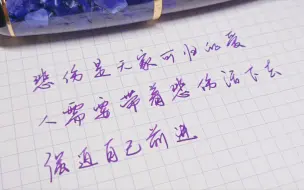 悲伤是无家可归的爱
人需要带着悲伤活下去
强迫自己前进